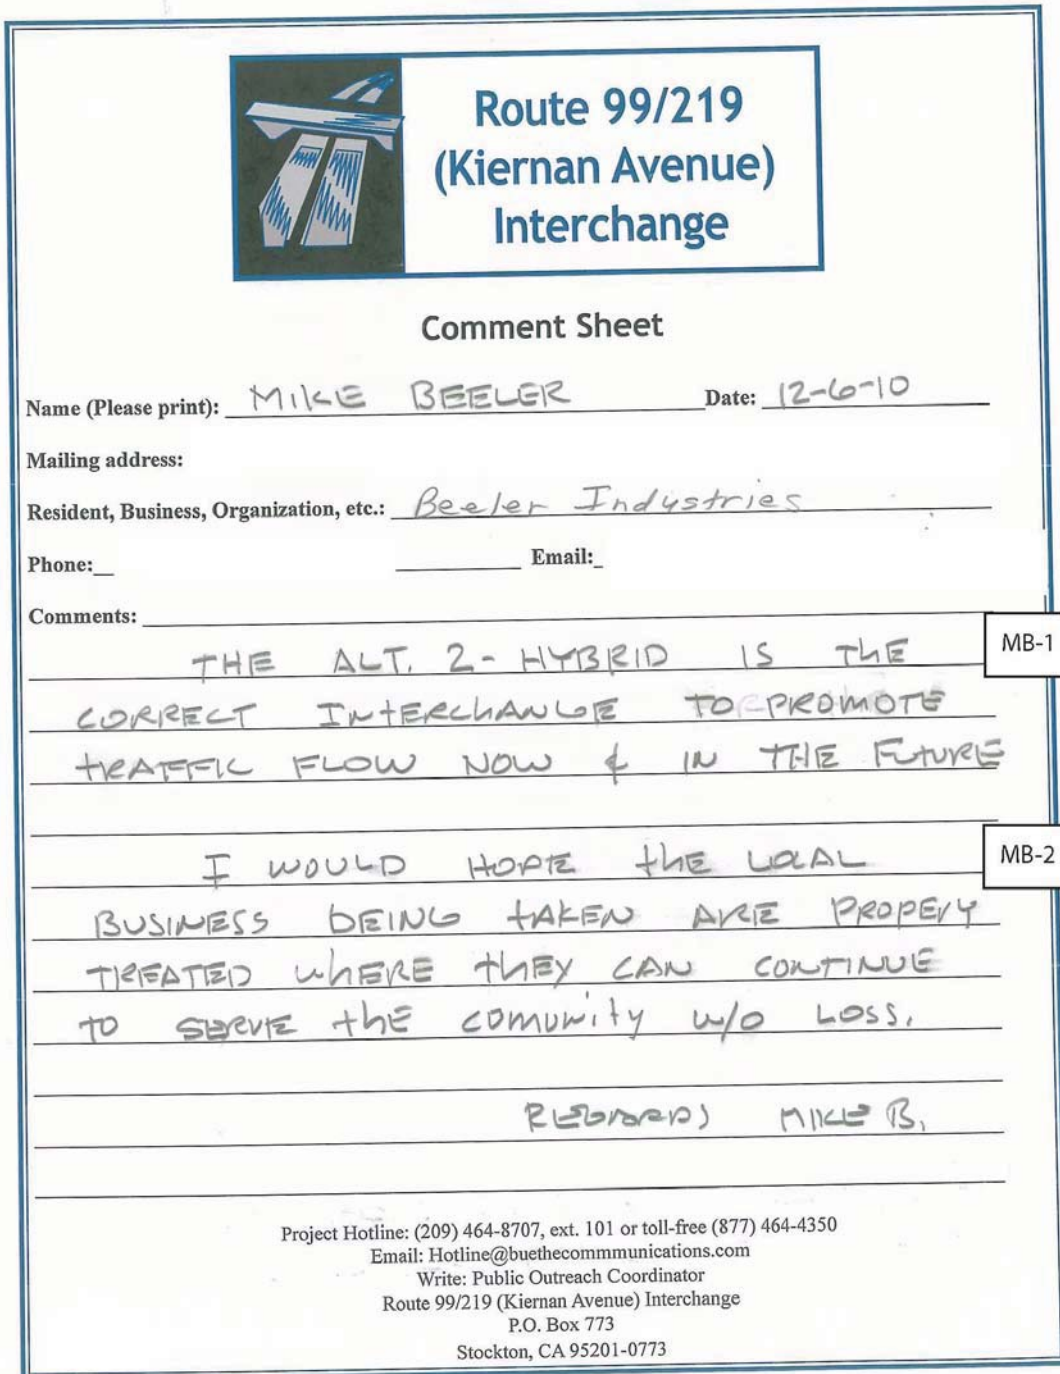 Route 99/219
(Kiernan Avenue)
Interchange
Comment Sheet
Name (Please print): MIKE BEELER Date: 12-6-10
Mailing address:
Resident, Business, Organization, etc.: Beeler Industries
Phone: Email:
Comments:
MB-1
THE ALT. 2- HYBRID IS THE
CORRECT INTERCHANGE TO PROMOTE
TRAFFIC FLOW NOW & IN THE FUTURE
MB-2
I WOULD HOPE THE LOCAL
BUSINESS BEING TAKEN ARE PROPERY
TREATED WHERE THEY CAN CONTINUE
TO SERVE THE COMUNITY W/O LOSS.
REGARDS MIKE B.
Project Hotline: (209) 464-8707, ext. 101 or toll-free (877) 464-4350
Email: Hotline@buethecommmunications.com
Write: Public Outreach Coordinator
Route 99/219 (Kiernan Avenue) Interchange
P.O. Box 773
Stockton, CA 95201-0773